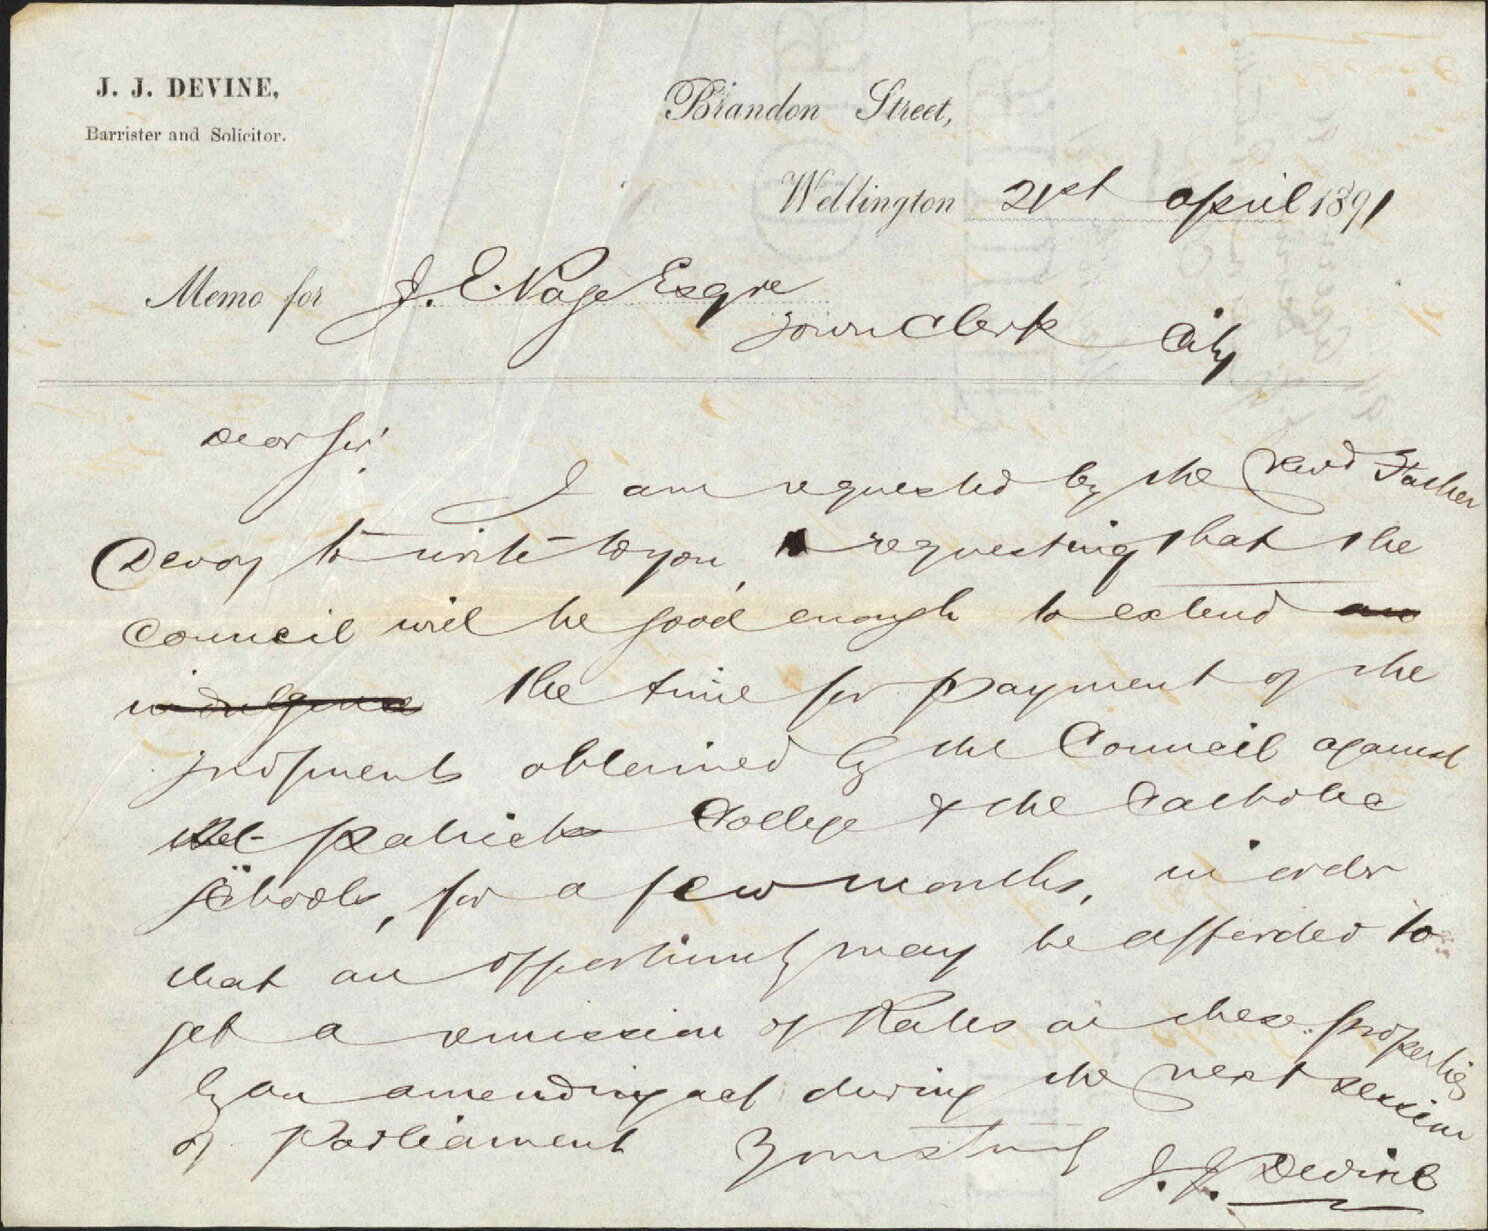 J. J. DEVINE,
Barrister and Solicitor.
Brandon Street,
Wellington 21st April 1891
Memo for J. E. Page Esqre
Town Clerk City
Dear Sir!
I am requested by the Revd Father
Devoy to write to you, requesting that the
Council will be good enough to extend an
indulgence the time for payment of the
judgments obtained by the Council against
Patricks College & the Catholic
Schools, for a few months, in order
that an opportunity may be afforded to
get a remission of Rates on these properties
by an amending act during the next session
of Parliament Yours truly
J. J. Devine